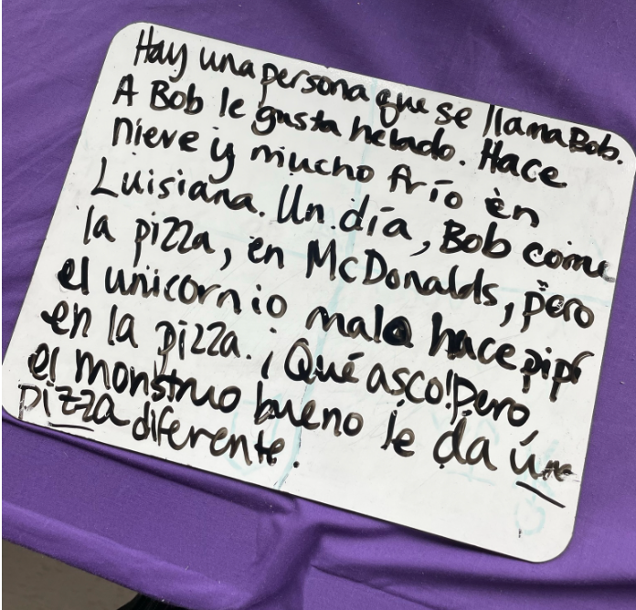 Hay una persona que se llama Bob.
A Bob le gusta helado. Hace
nieve y mucho frío en
Luisiana. Un día, Bob come
la pizza, en McDonalds, pero
el unicornio malo hace pipí
en la pizza. ¡Qué asco! Pero,
el monstruo bueno le da una
pizza diferente.